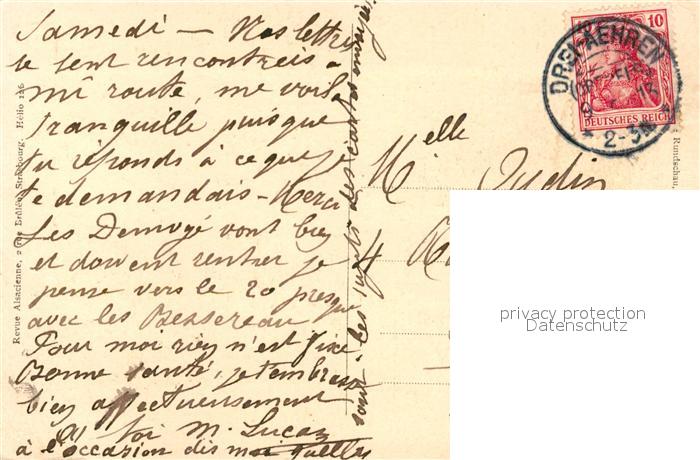 Samedi — Nos lettres
se sont rencontrées à
mi route, me voilà
tranquille puisque
tu réponds à ce que je
te demandais - Merci
Les Demogé vont bien
et doivent rentrer je
pense vers le 20 presque
avec les Bessereau
Pour moi rien n'est fixé.
Bonne santé, je t'embrasse
bien affectueusement
à toi M. Lucas
à l'occasion dis moi quelles
sont les sujets des cartes
Revue Alsacienne, 2 rue Brûlée, Strasbourg. Hélio 126
10
DEUTSCHES REICH
DREI-AEHREN
2-3N
Melle
4
Rundschau,
privacy protection
Datenschutz